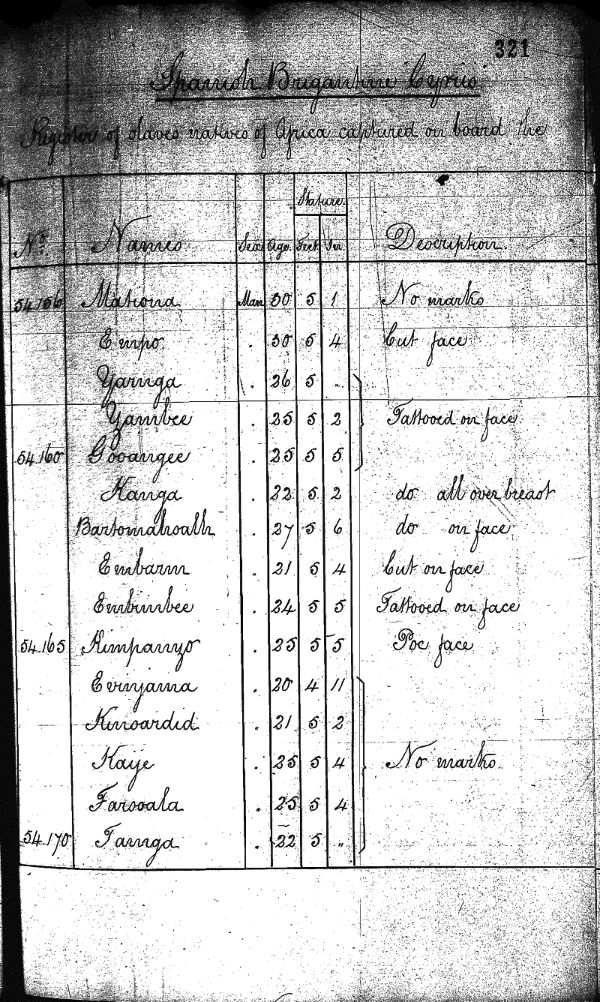 321
Spanish Brigantine Cyrus
Register of slaves natives of Africa captured on board the
Stature.
Nos. Names Sex Age. Feet In Description.
54.156 Mationa Man 30 5 1 No marks
Empo . 30 5 4 Cut face
Yarnga . 26 5 ..
Yambee . 25 5 2 Tattooed on face
54.160 Gooangee . 25 5 5
Kanga . 22 5 2 do all over breast
Bartomahoalh . 27 5 6 do on face
Embarm . 21 5 4 Cut on face
Embimbee . 24 5 5 Tattooed on face
54.165 Kimpanyo . 25 5 5 Poc face
Evinyama . 20 4 11
Kinsardid . 21 5 2
Kaye . 25 5 4 No marks.
Farsoala . 25 5 4
54.170 Tamga . 22 5 ..